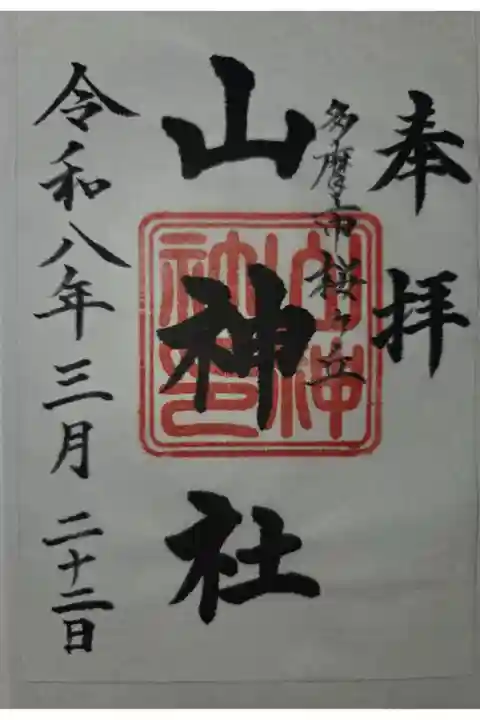 奉拝
多摩市桜ヶ丘
山神社
山神社印
令和八年三月二十二日